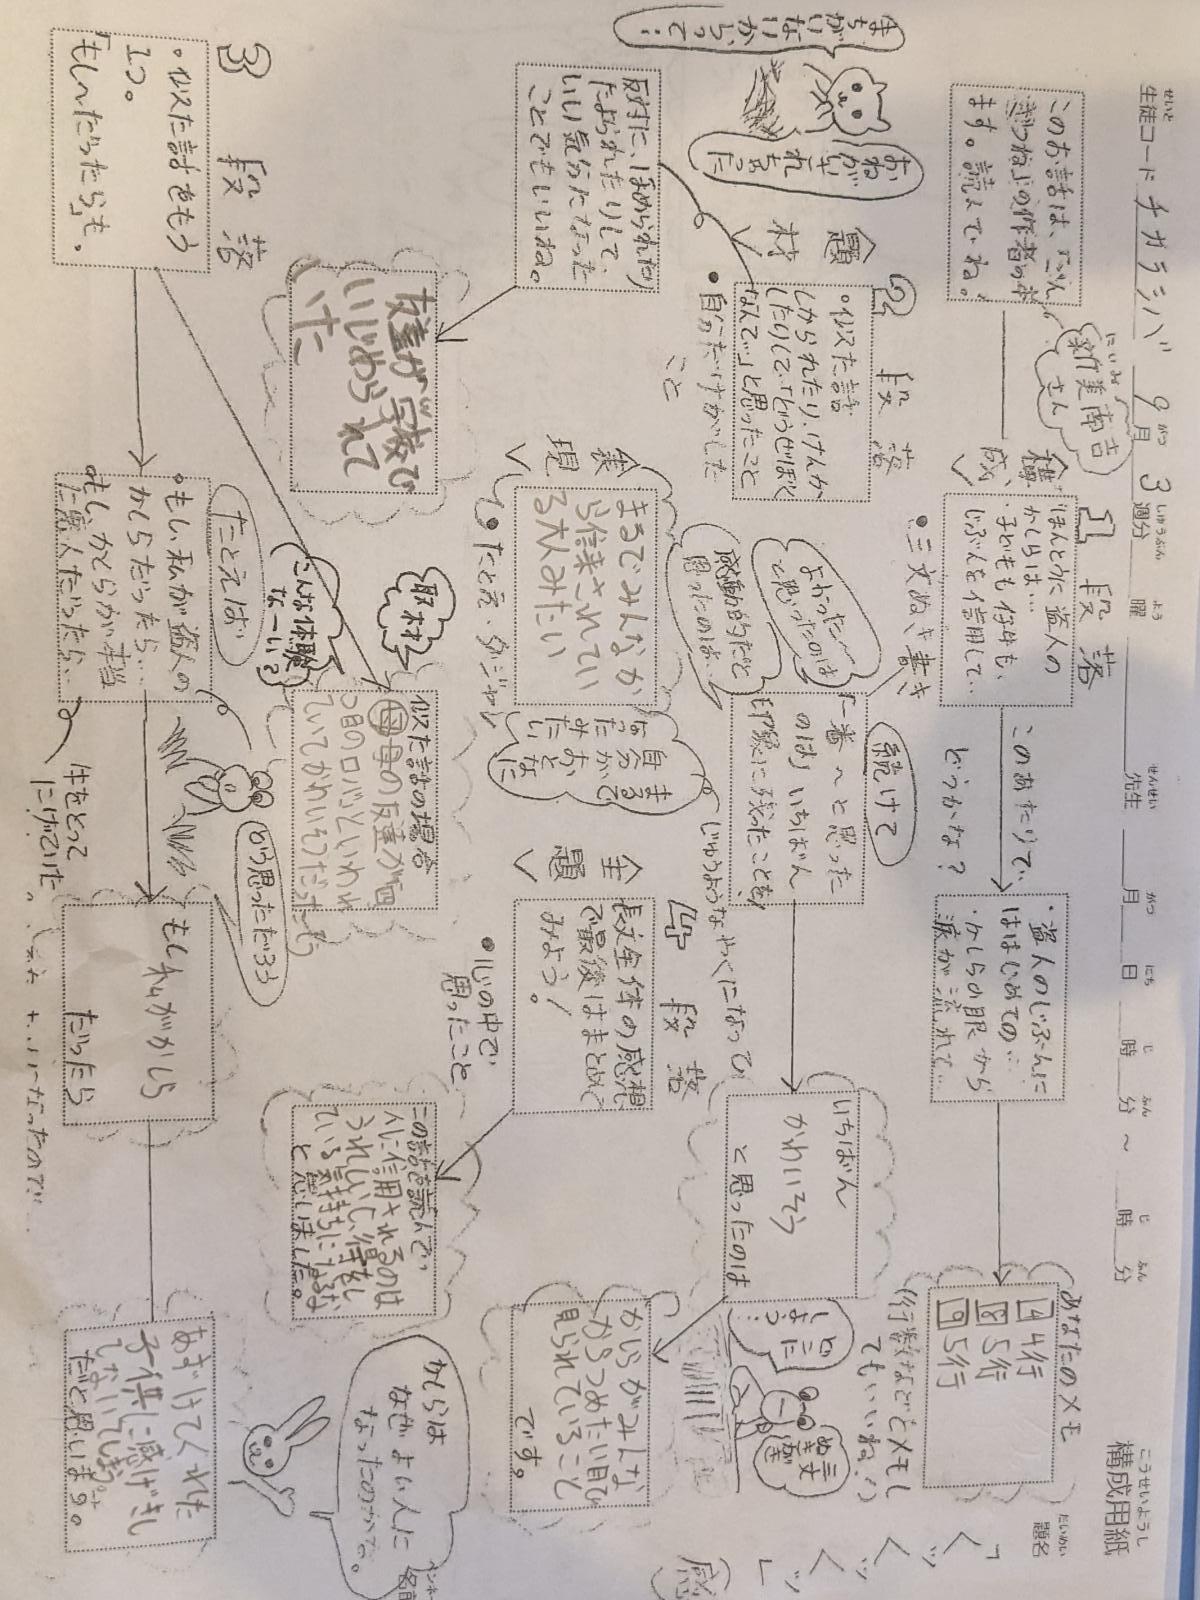 せいと
生徒コード チカラシバ 9月 3週分 曜 先生 月 日 時 分 ~ 時 分
こうせいようし
構成用紙
だいめい
題名
このお話は、ごん
ぎつねの作者の本
ます。読んでね。
にいみ
新美南吉
さん
<構成>
1段落
ほんとうに盗人の
かしらは…
・子どもも仔牛も、
じぶんを信用して…
・三文ぬき書き
このあたりで、
どうかな?
・盗人のじぶんに
はじめての…
・かしらの眼から
涙が流れて…
あなたのメモ
4行
5行
5行
(行数などをメモし
てもいいね!)
三文
ぬき
書き
どこに
しよう…
まちがい
ないから
って…
おねが
いされ
<題材>
2段落
・似た話
しかられたり、けんか
したりして、「どうせぼく
なんて…」と思ったこと
・自分だけがした
こと
反対に、ほめられたり
たよられたりして、
いい気分になった
ことでもいいね。
友達が学校で
いじめられて
いた
続けて
「一番~と思った
のは」いちばん
印象に残ったことを
よかった
と思ったのは
感動的だと
思ったのは…
いちばん
かわいそう
と思ったのは
かしらがみんな
からつめたい目で
見られていること
です。
<表現>
・たとえ・ダジャレ
まるでみんなか
ら信茉されてい
る大人みたい
まるで
自分がおとなに
なったみたい
じゅうようなやくになって
取材
こんな体験
な~い?
似た話の場合
母 母の友達が面
つ目のロバといわれ
ていてかわいそうだった
<主題>
4段落
長文全体の感想
で最後はまとめて
みよう!
・心の中で
思ったこと
この話を読んで、
人に信用されるのは
うれしいし、得をし
ている気持ちになるな
と思いました。
3段落
・似た話をもう
1つ。
「もし~だったら」も。
たとえば
・もし、私が盗人の
かしらだったら…
・もし、かしらが本当
に悪人だったら…
どう思っただろう
牛をとって
にげていた。
もし私がかしら
だったら
あずけてくれた
子供に感げきし
てないてしまう
だと思います。
かしらは
なぜよい人に
なったのかな。